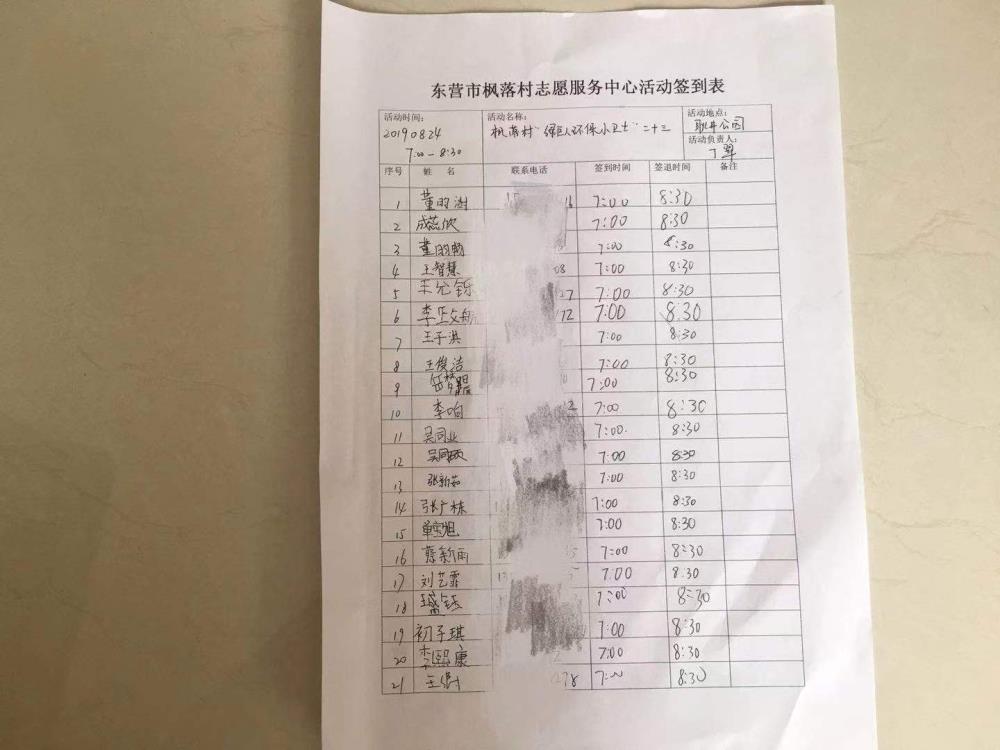 东营市枫落村志愿服务中心活动签到表
活动时间: 活动名称: 活动地点:
20190824 枫落村“绿巨人环保小卫士”二十三 耿井公园
7:00-8:30 活动负责人:
丁翠
序号 姓 名 联系电话 签到时间 签退时间 备注
1 董昀澍 16 7:00 8:30
2 成蕊欣 7:00 8:30
3 董昀畅 7:00 8:30
4 王智慧 08 7:00 8:30
5 王允铄 27 7:00 8:30
6 李政航 172 7:00 8:30
7 王子淇 7:00 8:30
8 王俊洁 7:00 8:30
9 7:00 8:30
10 李响 2 7:00 8:30
11 吴同业 7:00. 8:30
12 吴同硕 7:00 8:30
13 张新茹 7:00 8:30
14 张广栋 7:00 8:30
15 单宝旭 7:00 8:30
16 蔡新雨 7:00 8:30
17 刘艺霏 7:00 8:30
18 钰 7:00 8:30
19 初子琪 7:00 8:30
20 李熙康 7:00 8:30
21 王 278 7:00 8:30